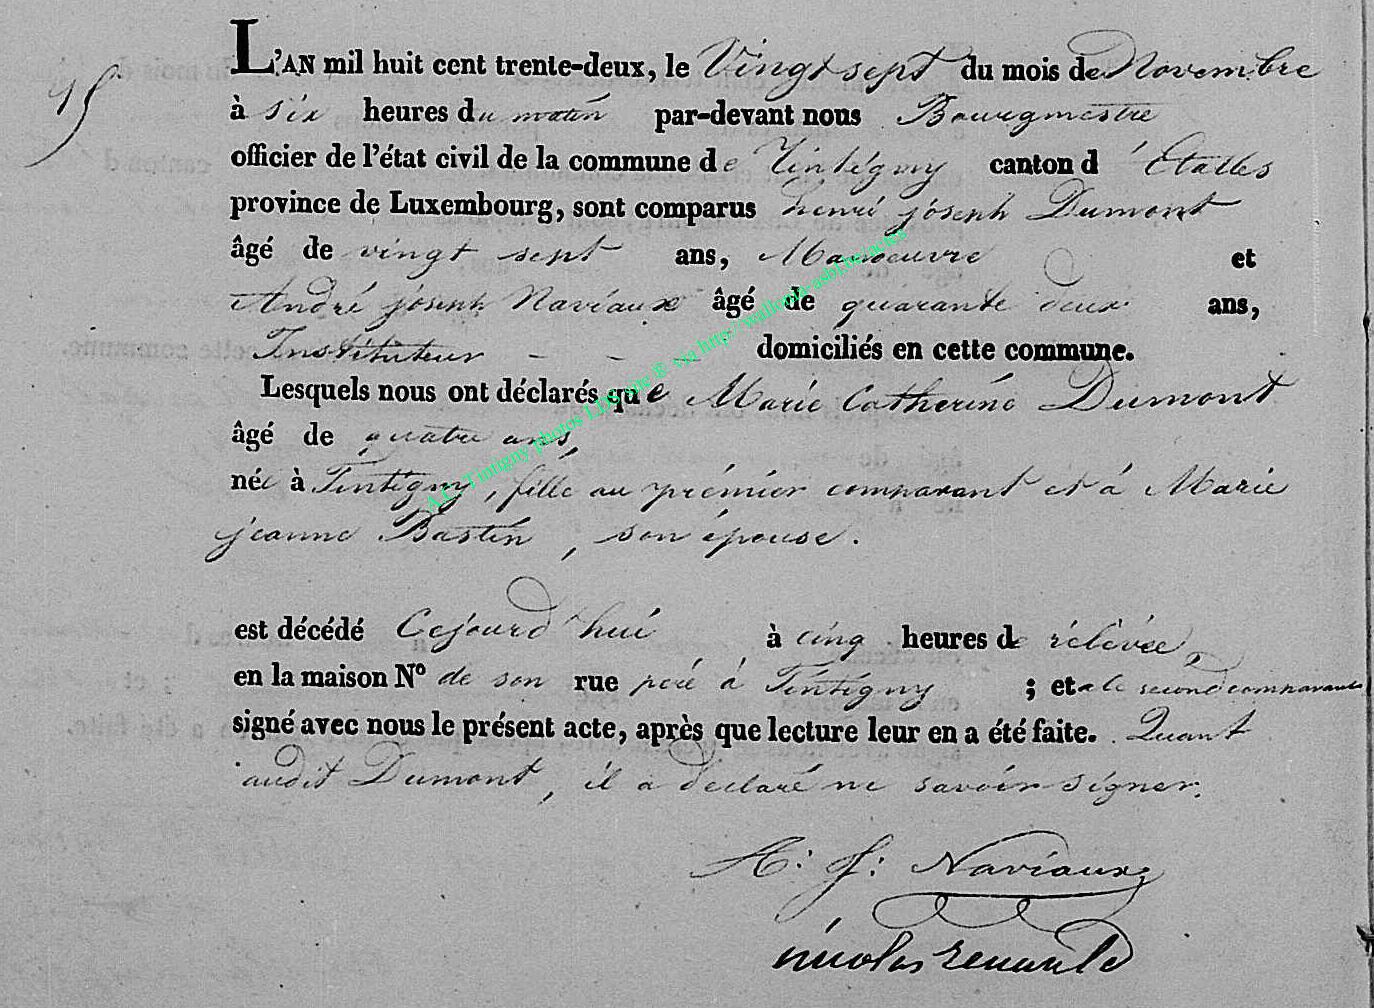 15
L'AN mil huit cent trente-deux, le Vingt sept du mois de Novembre
à six heures du matin par-devant nous Bourgmestre
officier de l'état civil de la commune de Tintigny canton d'Etalles
province de Luxembourg, sont comparus henri joseph Dumont
âgé de vingt sept ans, Manoeuvre et
André joseph Naviaux âgé de quarante deux ans,
Instituteur - - domiciliés en cette commune.
Lesquels nous ont déclarés que Marie Catherine Dumont
âgé de quatre ans,
née à Tintigny, fille au prémier comparant et à Marie
jeanne Bastin, son épouse.
est décédé Cejourd'hui à cinq heures de rélévée
en la maison N° de son rue pere à Tintigny ; et a le second comparant
signé avec nous le présent acte, après que lecture leur en a été faite. Quant
audit Dumont, il a declaré ne savoir signer.
A: J: Naviaux
nicolas renauld
A.E. Tintigny photos via http://wallonia-asbl.be/actes